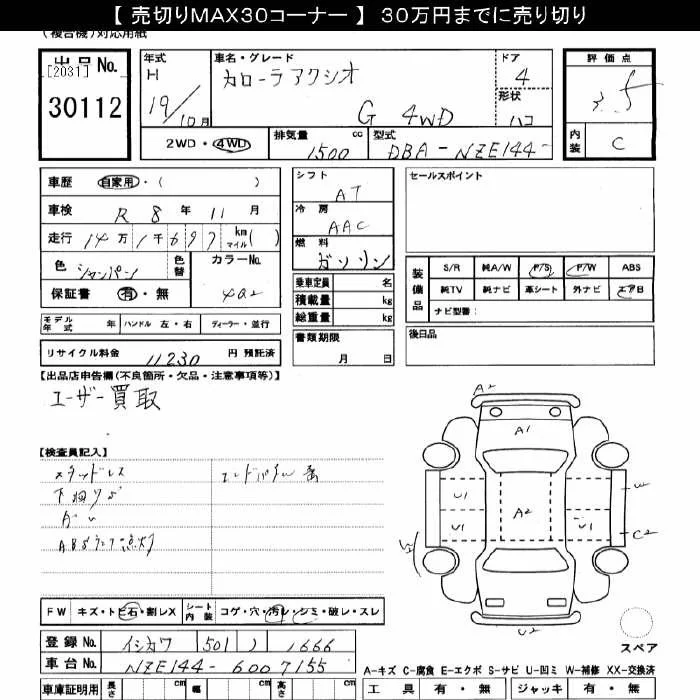 【 売切りMAX30コーナー 】 30万円までに売り切り
(複合機)対応用紙
出品No.
[2031]
30112
年式
H
19/10月
車名・グレード
カローラアクシオ
G 4WD
ドア
4
形状
ハコ
評価点
3.5
内装
C
2WD・4WD
排気量
cc
1500
型式
DBA-NZE144-
車歴
自家用・( )
車検
R 8 年 11 月
走行
14万1千697
km
マイル
( )
色
シャンパン
色替
カラーNo.
4Q2
保証書
有・無
モデル年式
年
ハンドル 左・右
ディーラー・並行
リサイクル料金
11230
円 預託済
シフト
AT
冷房
AAC
燃料
ガソリン
乗車定員
名
積載量
kg
総重量
kg
書類期限
月 日
セールスポイント
装備品
S/R
純A/W
P/S
P/W
ABS
純TV
純ナビ
革シート
外ナビ
エアB
ナビ型番:
後日品
【出品店申告欄(不良箇所・欠品・注意事項等)】
ユーザー買取
【検査員記入】
スタッドレス
下廻りサビ
ABSランプ点灯
FW
キズ・トビ石・割レX
シート内装
コゲ・穴・汚レ・シミ・破レ・スレ
登録No.
イシカワ 501 ) 1666
車台No.
NZE144-6007155
車庫証明用
長さ
cm
幅
cm
高さ
cm
A2
A1
U1
A2
U1
U1
U1
W
C2
U2
スペア
A-キズ C-腐食 E-エクボ S-サビ U-凹ミ W-補修 XX-交換済
工具
有・無
ジャッキ
有・無